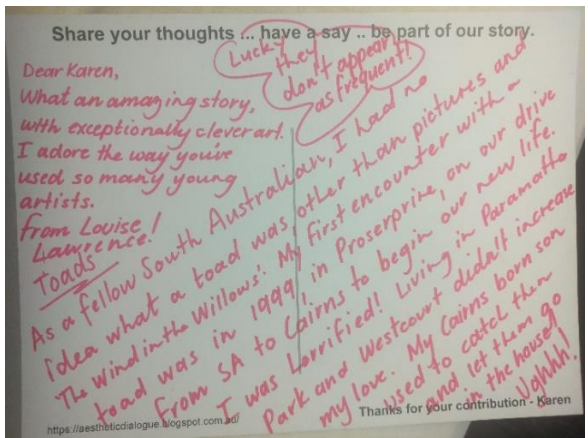 Share your thoughts ... have a say .. be part of our story.
Lucky
they
don't appear
as frequent!
Dear Karen,
What an amazing story,
with exceptionally clever art.
I adore the way you've
used so many young
artists.
from Louise /
Lawrence.
Toads
As a fellow South Australian, I had no
idea what a toad was, other than pictures and
The Wind in the Willows. My first encounter with a
toad was in 1999, in Proserprine, on our drive
from SA to Cairns to begin our new life.
I was horrified! Living in Paramatta
Park and Westcourt didn't increase
my love. My Cairns born son
used to catch them
and let them go
in the house!
Ughhh!
Thanks for your contribution - Karen
https://aestheticdialogue.blogspot.com.au/